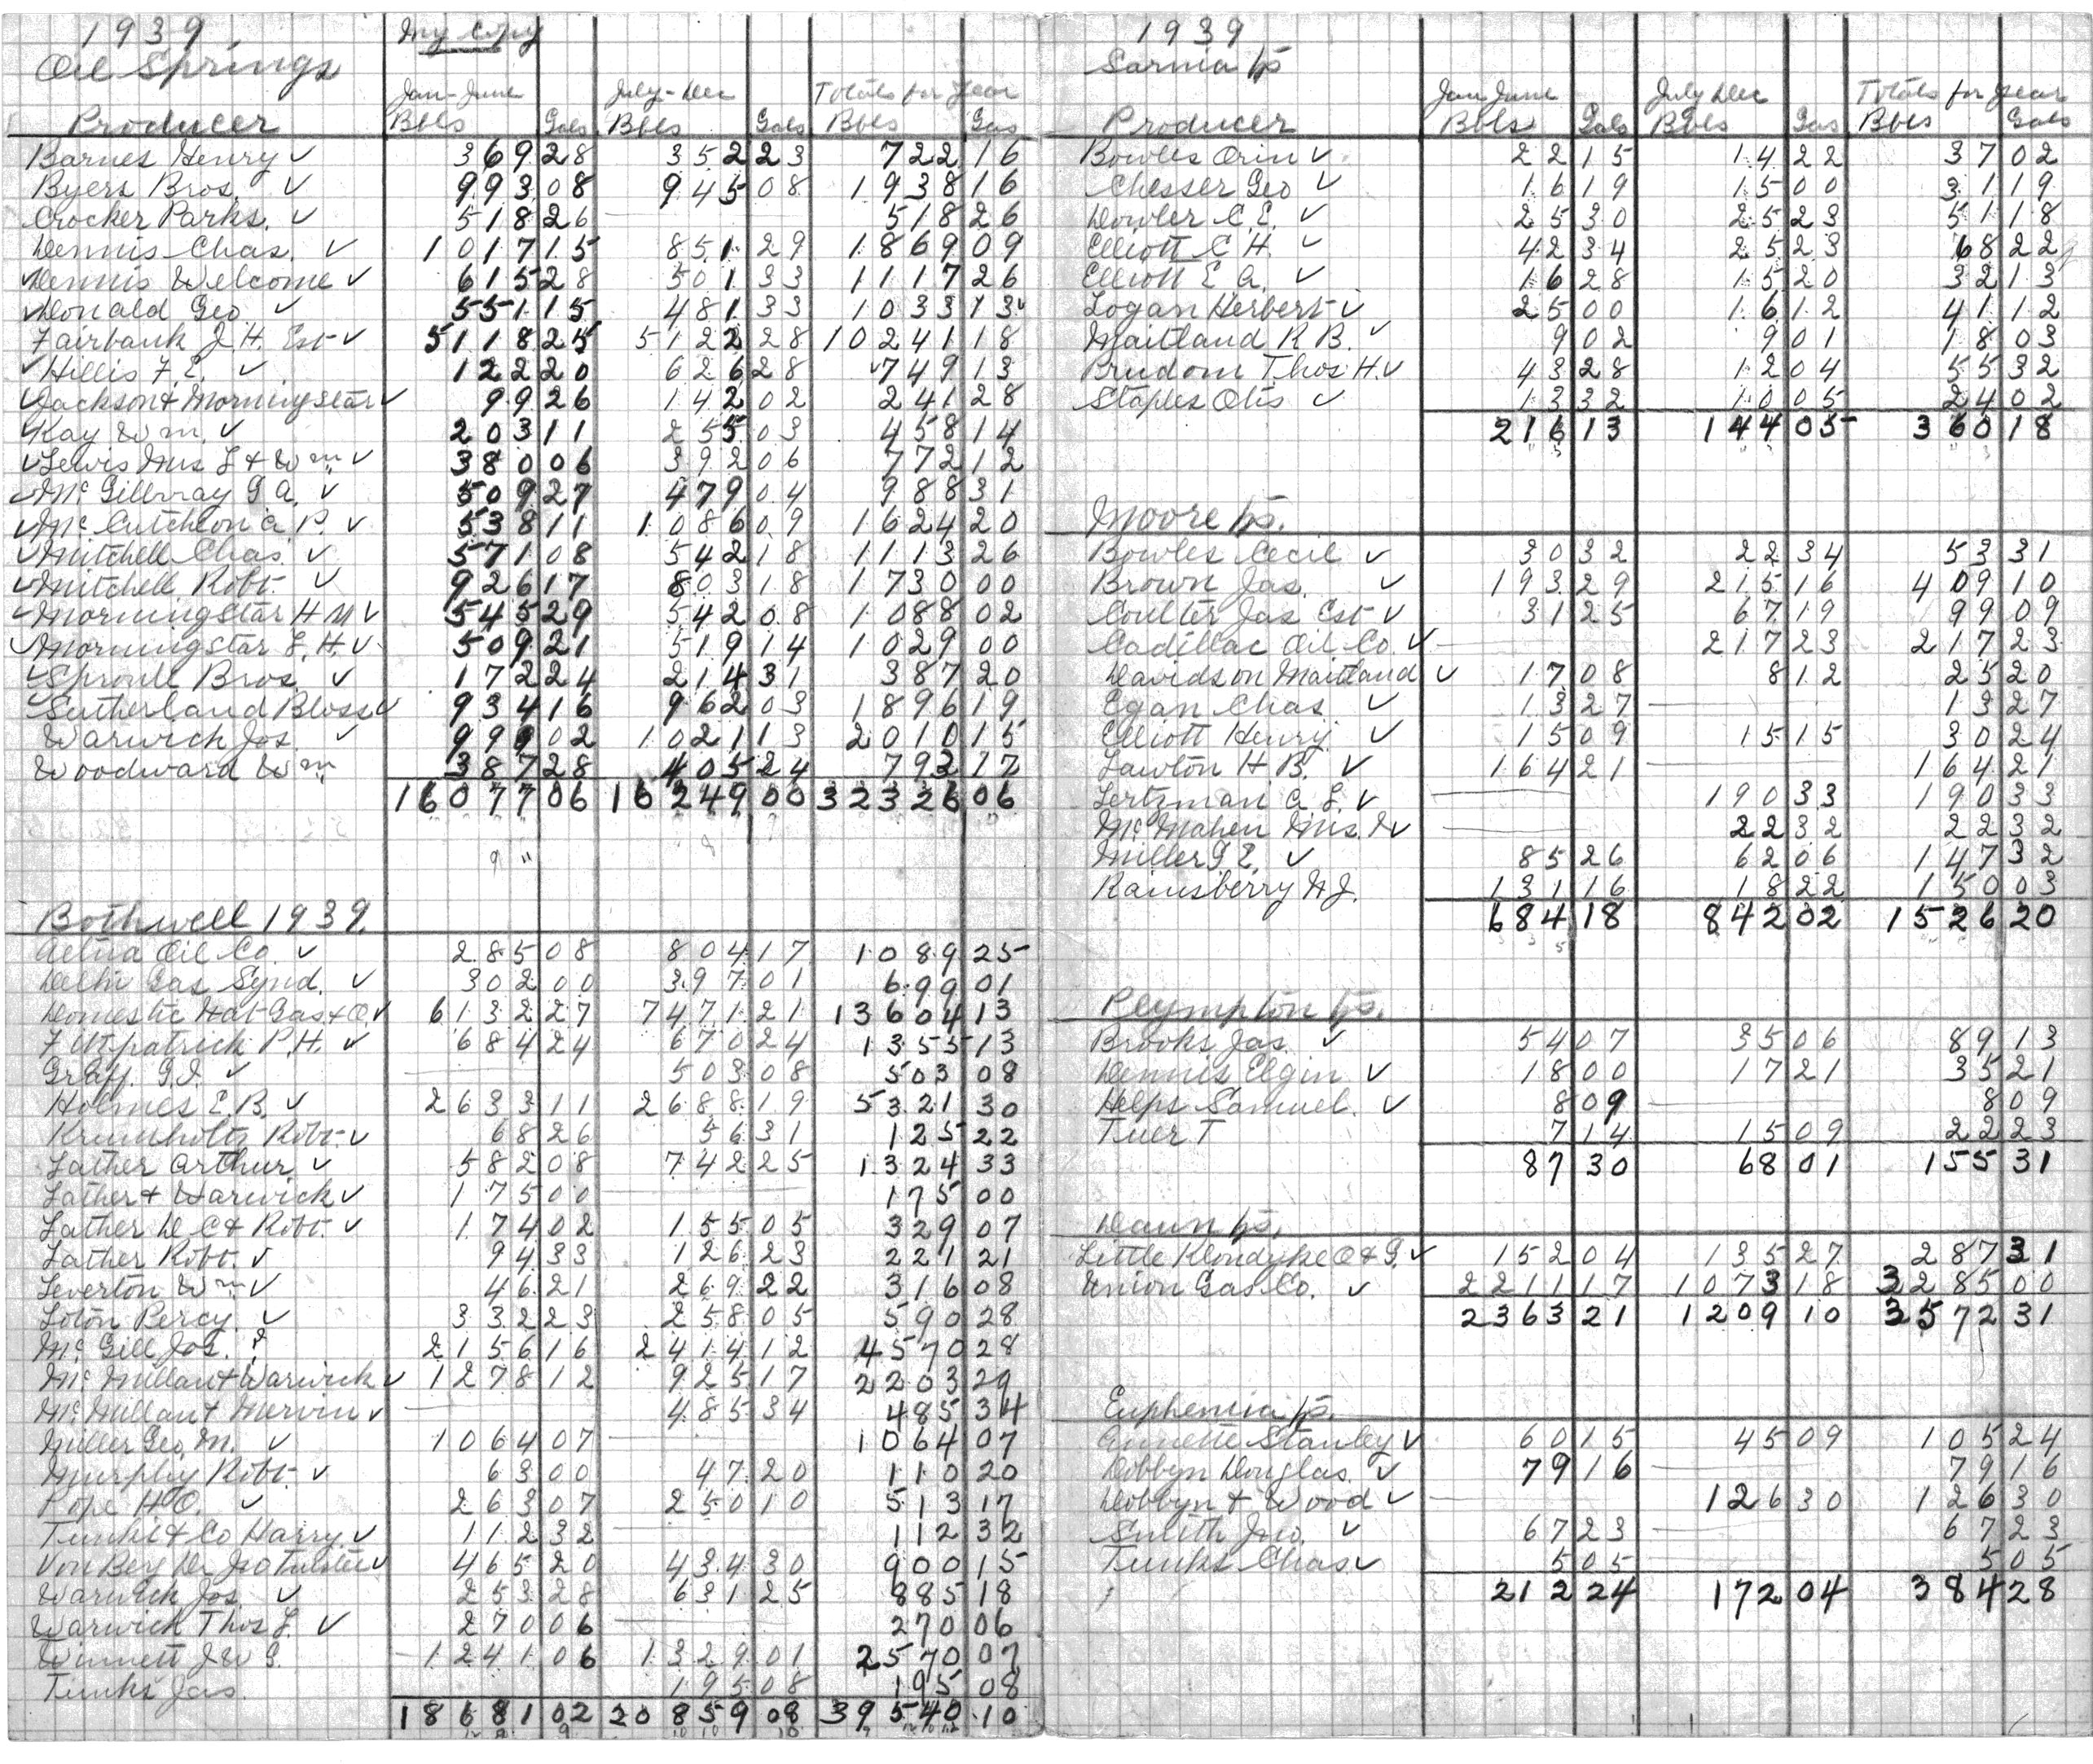 1939
Oil Springs
My Copy
Jan-June July-Dec Totals for Year
Producer Bbls Gals Bbls Gals Bbls Gas
Barnes Henry ✓ 369 28 352 23 722 16
Byers Bros. ✓ 993 08 945 08 1938 16
Crocker Parks. ✓ 518 26 — 518 26
Dennis Chas. ✓ 1017 15 851 29 1869 09
✓ Dennis Welcome ✓ 615 28 501 33 1117 26
✓ Donald Geo ✓ 551 15 481 33 1033 13
Fairbank J. H. Est ✓ 5118 25 5122 28 10241 18
✓ Hillis F. E. ✓ 122 20 626 28 749 13
✓ Jackson & Morningstar ✓ 99 26 142 02 241 28
✓ Kay Wm. ✓ 203 11 255 03 458 14
✓ Lewis Mrs L & Wm ✓ 380 06 392 06 772 12
✓ McGillvray G A. ✓ 509 27 479 04 988 31
✓ McCutcheon A. P. ✓ 538 11 1086 09 1624 20
✓ Mitchell Chas. ✓ 571 08 542 18 1113 26
✓ Mitchell Robt. ✓ 926 17 803 18 1730 00
✓ Morningstar H M ✓ 545 29 542 08 1088 02
✓ Morningstar L. H. ✓ 509 21 519 14 1029 00
✓ Sproule Bros. ✓ 172 24 214 31 387 20
✓ Sutherland Bloss ✓ 934 16 962 03 1896 19
Warwick Jos. ✓ 999 02 1021 13 2010 15
Woodward Wm 387 28 405 24 793 17
16077 06 16249 00 32326 06
Bothwell 1939.
Aetna Oil Co. ✓ 285 08 804 17 1089 25
Delhi Gas Synd. ✓ 302 00 397 01 699 01
Domestic Nat Gas & O. ✓ 6132 27 7471 21 13604 13
Fitzpatrick P. H. ✓ 684 24 670 24 1355 13
Graff. G. I. ✓ — 503 08 503 08
Holmes E. B. ✓ 2633 11 2688 19 5321 30
Krumholtz Robt. ✓ 68 26 56 31 125 22
Lather Arthur ✓ 582 08 742 25 1324 33
Lather & Warwick ✓ 175 00 — 175 00
Lather D C & Robt. ✓ 174 02 155 05 329 07
Lather Robt. ✓ 94 33 126 23 221 21
Leverton Wm ✓ 46 21 269 22 316 08
Loton Percy. ✓ 332 23 258 05 590 28
McGill Jas. ✓ 2156 16 2414 12 4570 28
McMillan & Warwick ✓ 1278 12 925 17 2203 29
McMillan & Mervin ✓ — 485 34 485 34
Miller Geo. M. ✓ 1064 07 — 1064 07
Murphy Robt. ✓ 63 00 47 20 110 20
Pope H O. ✓ 263 07 250 10 513 17
Tunks & Co Harry. ✓ 112 32 — 112 32
Von Bey Dr Jno Trustee ✓ 465 20 434 30 900 15
Warwick Jos. ✓ 253 28 631 25 885 18
Warwick Thos L. ✓ 270 06 — 270 06
Winnett J W G. 1241 06 1329 01 2570 07
Tunks Jas. 195 08 195 08
18681 02 20859 08 39540 10
1939
Sarnia Tp
Jan June July Dec Totals for Year
Producer Bbls Gals Bbls Gas Bbls Gals
Bowles Orin ✓ 22 15 14 22 37 02
Chesser Geo ✓ 16 19 15 00 31 19
Dowler C. E. ✓ 25 30 25 23 51 18
Elliott C H. ✓ 42 34 25 23 68 22
Elliott E A. ✓ 16 28 15 20 32 13
Logan Herbert ✓ 25 00 16 12 41 12
Maitland R B. ✓ 9 02 9 01 18 03
Prudom Thos H. ✓ 43 28 12 04 55 32
Staples Otis ✓ 13 32 10 05 24 02
216 13 144 05 360 18
Moore Tp.
Bowles Cecil ✓ 30 32 22 34 53 31
Brown Jas. ✓ 193 29 215 16 409 10
Coulter Jas Est ✓ 31 25 67 19 99 09
Cadillac Oil Co. ✓ — 217 23 217 23
Davidson Maitland ✓ 17 08 8 12 25 20
Egan Chas ✓ 13 27 — 13 27
Elliott Henry ✓ 15 09 15 15 30 24
Lawton H B. ✓ 164 21 — 164 21
Lertzman A L. ✓ — 190 33 190 33
McMahen Mrs. ✓ — 22 32 22 32
Miller G E. ✓ 85 26 62 06 147 32
Rainsberry N J. 131 16 18 22 150 03
684 18 842 02 1526 20
Plympton Tp.
Brooks Jas. ✓ 54 07 35 06 89 13
Dennis Elgin ✓ 18 00 17 21 35 21
Helps Samuel. ✓ 8 09 — 8 09
Tuer T 7 14 15 09 22 23
87 30 68 01 155 31
Dawn Tp.
Little Klondyke O & G. ✓ 152 04 135 27 287 31
Union Gas Co. ✓ 2211 17 1073 18 3285 00
2363 21 1209 10 3572 31
Euphemia Tp.
Annette Stanley ✓ 60 15 45 09 105 24
Dobbyn Douglas. ✓ 79 16 — 79 16
Dobbyn & Wood ✓ — 126 30 126 30
Smith Jno. ✓ 67 23 — 67 23
Tunks Chas ✓ 5 05 — 5 05
212 24 172 04 384 28